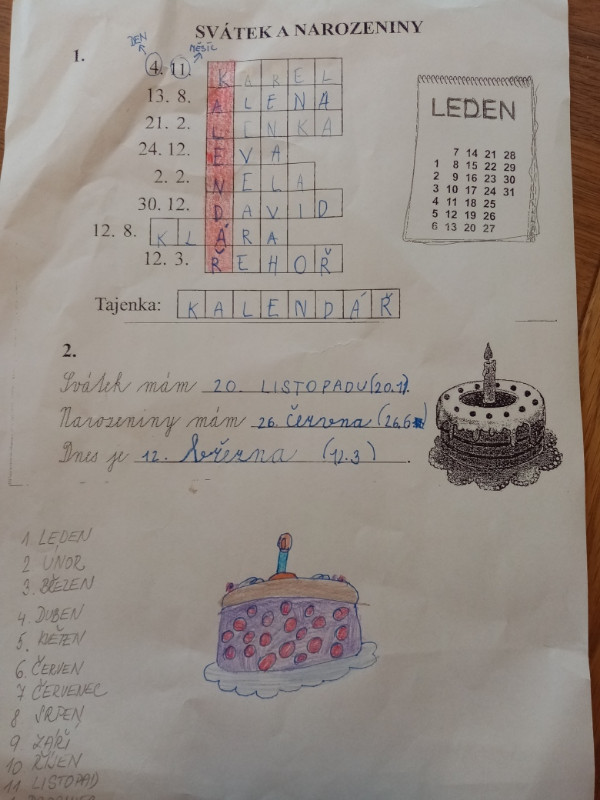 SVÁTEK A NAROZENINY
DEN MĚSÍC
1.
4. 11. KAREL
13. 8. ALENA
21. 2. LENKA
24. 12. EVA
2. 2. NELA
30. 12. DAVID
12. 8. KLÁRA
12. 3. ŘEHOŘ
LEDEN
7 14 21 28
1 8 15 22 29
2 9 16 23 30
3 10 17 24 31
4 11 18 25
5 12 19 26
6 13 20 27
Tajenka: KALENDÁŘ
2.
Svátek mám 20. LISTOPADU (20.11).
Narozeniny mám 26. června (26.6)
Dnes je 12. března (12.3).
1. LEDEN
2 ÚNOR
3. BŘEZEN
4 DUBEN
5. KVĚTEN
6. ČERVEN
7 ČERVENEC
8 SRPEN
9 ZÁŘÍ
10 ŘÍJEN
11 LISTOPAD